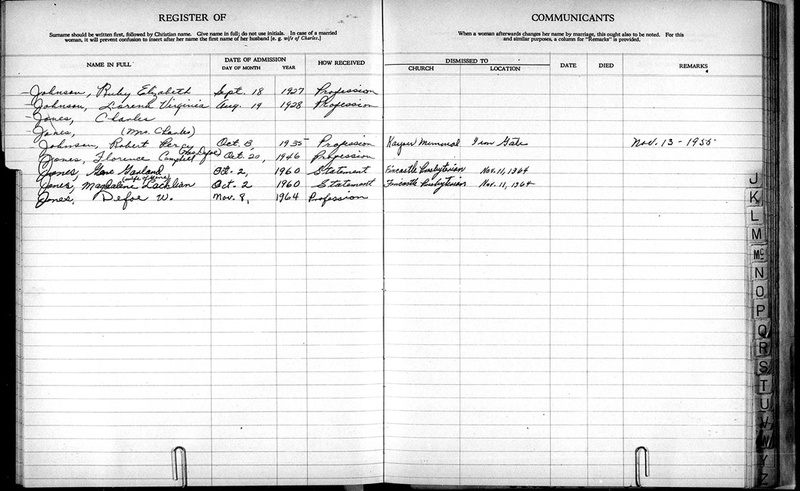 REGISTER OF
COMMUNICANTS
Surname should be written first, followed by Christian name. Give name in full; do not use initials. In case of a married
woman, it will prevent confusion to insert after her name the first name of her husband [e. g. wife of Charles.]
When a woman afterwards changes her name by marriage, this ought also to be noted. For this
and similar purposes, a column for "Remarks" is provided.
NAME IN FULL DATE OF ADMISSION DAY OF MONTH YEAR HOW RECEIVED DISMISSED TO CHURCH LOCATION DATE DIED REMARKS
Johnson, Ruby Elizabeth Sept. 18 1927 Profession
Johnson, Lorena Virginia Aug. 19 1928 Profession
Jones, Charles
Jones, (Mrs. Charles)
Johnson, Robert Percy Oct. 8, 1935 Profession Kayser Memorial Iron Gate Nov. 13 - 1955
Jones, Florence Campbell (Mrs. Defoe) Oct. 20, 1946 Profession
Jones, Gene Garland Oct. 2, 1960 Statement Fincastle Presbyterian Nov. 11, 1964
Jones, Magdalene Lachlian (wife of Gene) Oct. 2 1960 Statement Fincastle Presbyterian Nov. 11, 1964
Jones, Defoe W. Nov. 8, 1964 Profession
J
K
L
M
Mc
N
O
P
Q
R
S
T
U
V
W
Y
Z